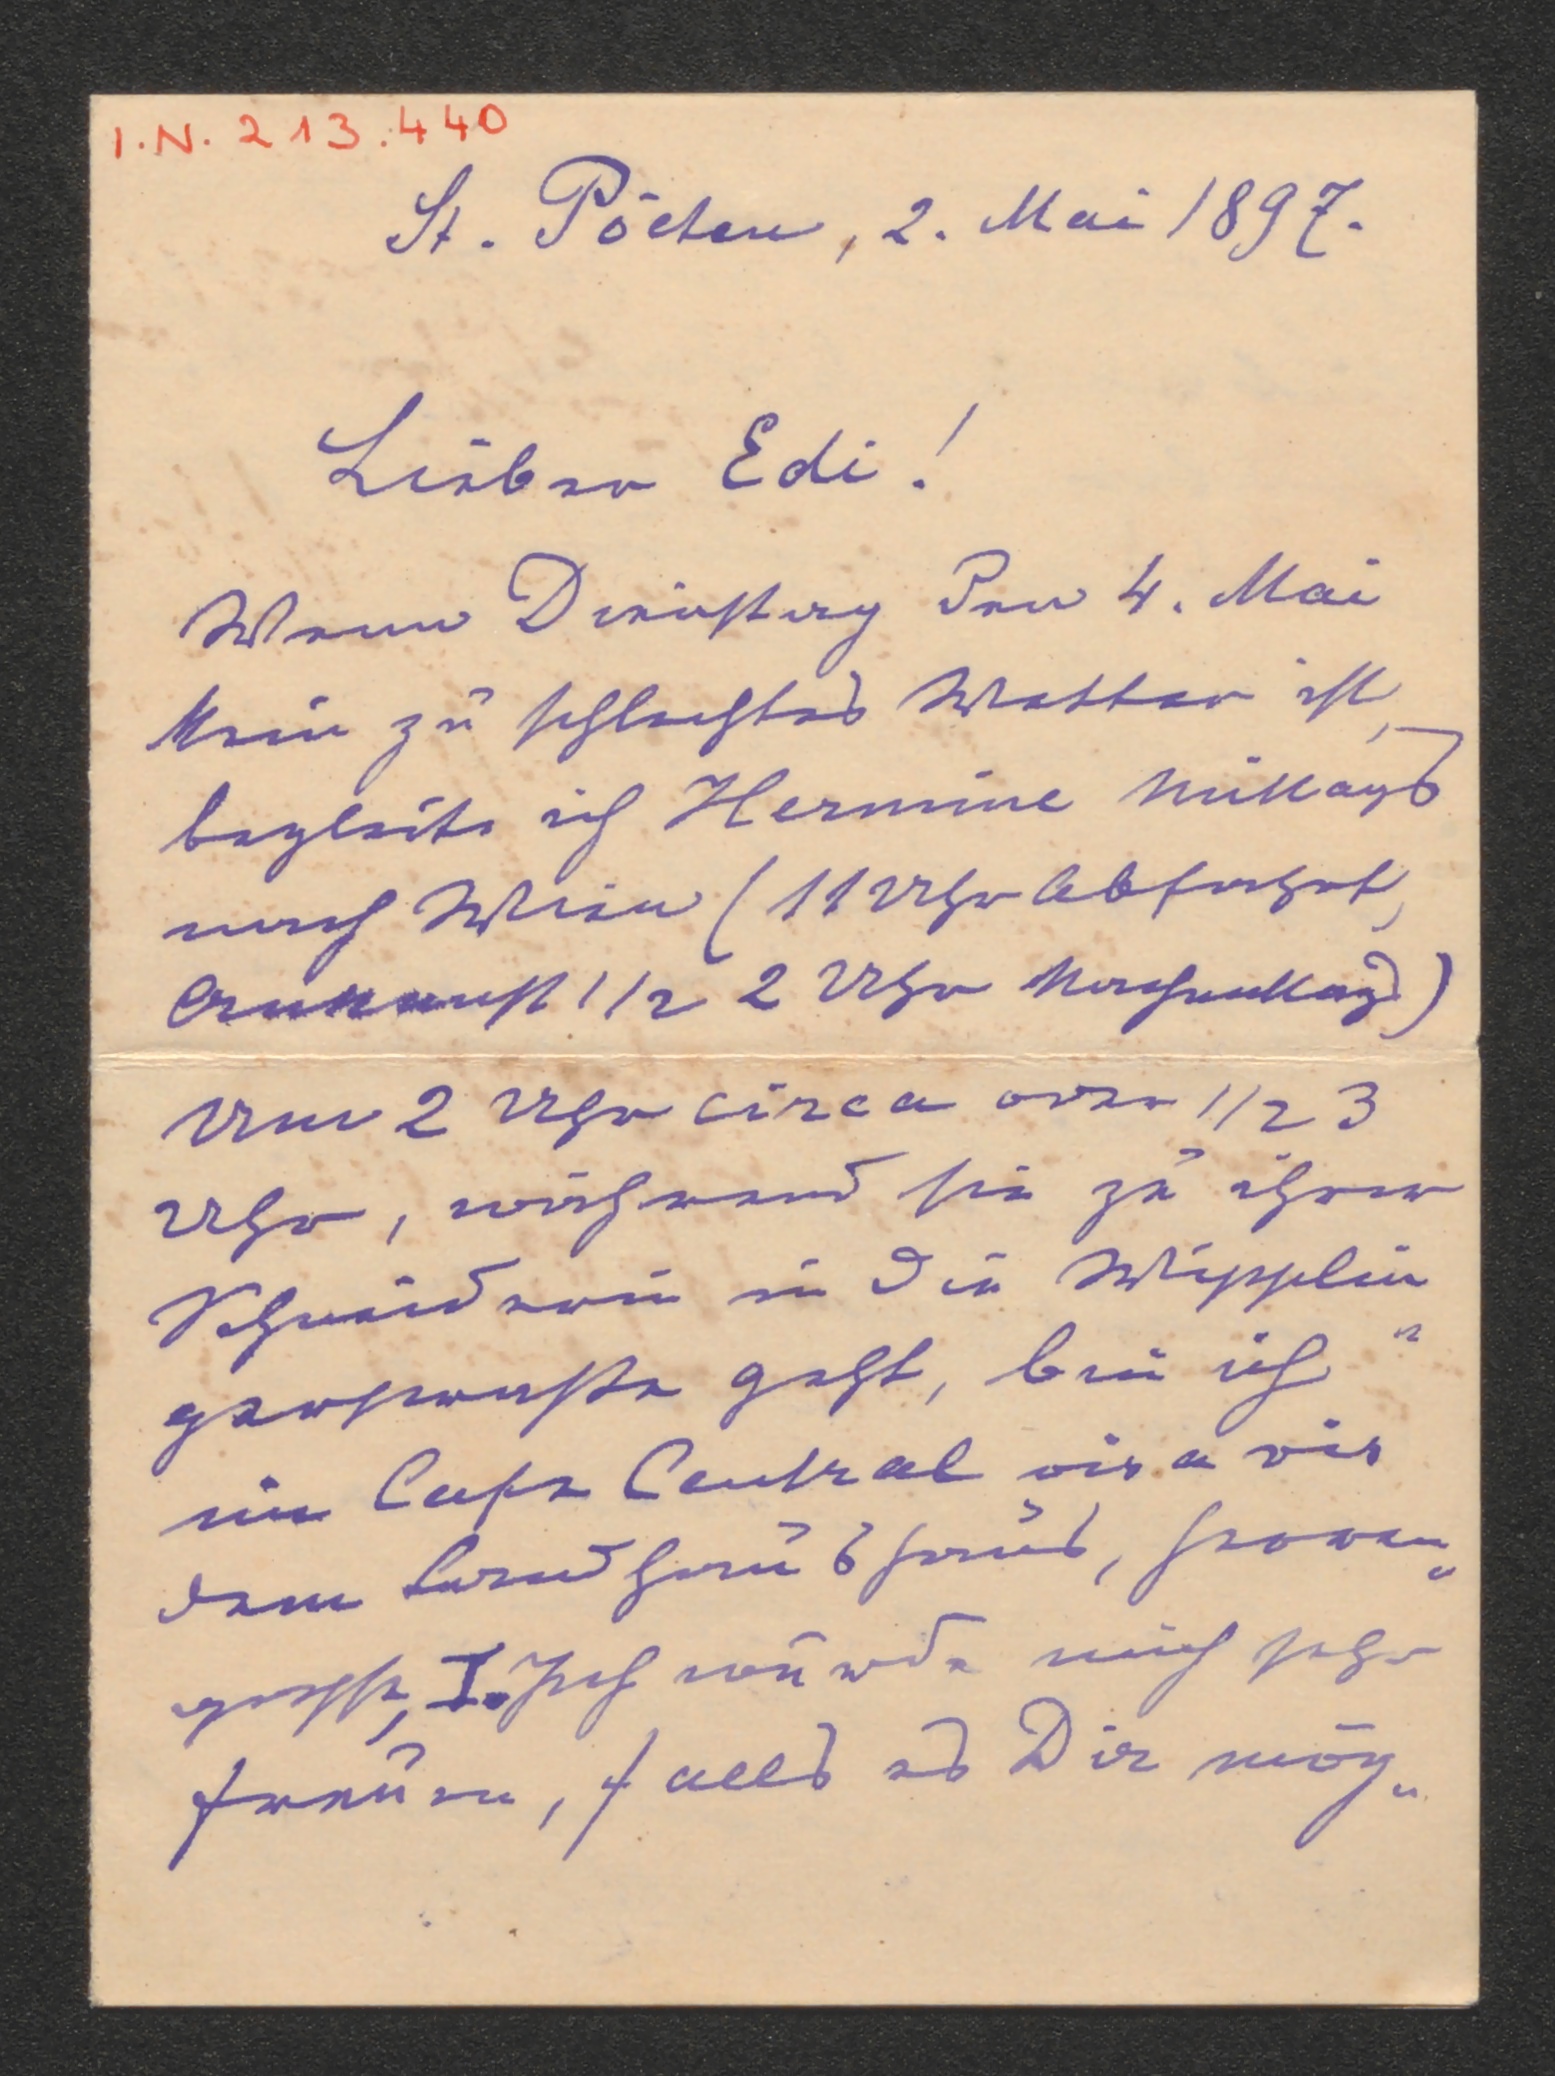 I.N. 213.440
St. Pölten, 2. Mai 1897.
Lieber Edi!
Wenn Dienstag den 4. Mai
kein zu schlechtes Wetter ist,
begleite ich Hermine Mittags
nach Wien (11 Uhr Abfahrt,
Ankunft 1/2 2 Uhr Nachmittag)
Um 2 Uhr circa oder 1/2 3
Uhr, während sie zu ihrer
Schneiderin in die Wipplin
"gerstrasse geht, bin ich
im Cafe Central vis a vis
dem Landhaus, Herren"
gasse, I. Ich würde mich sehr
freuen, falls es Dir mög"